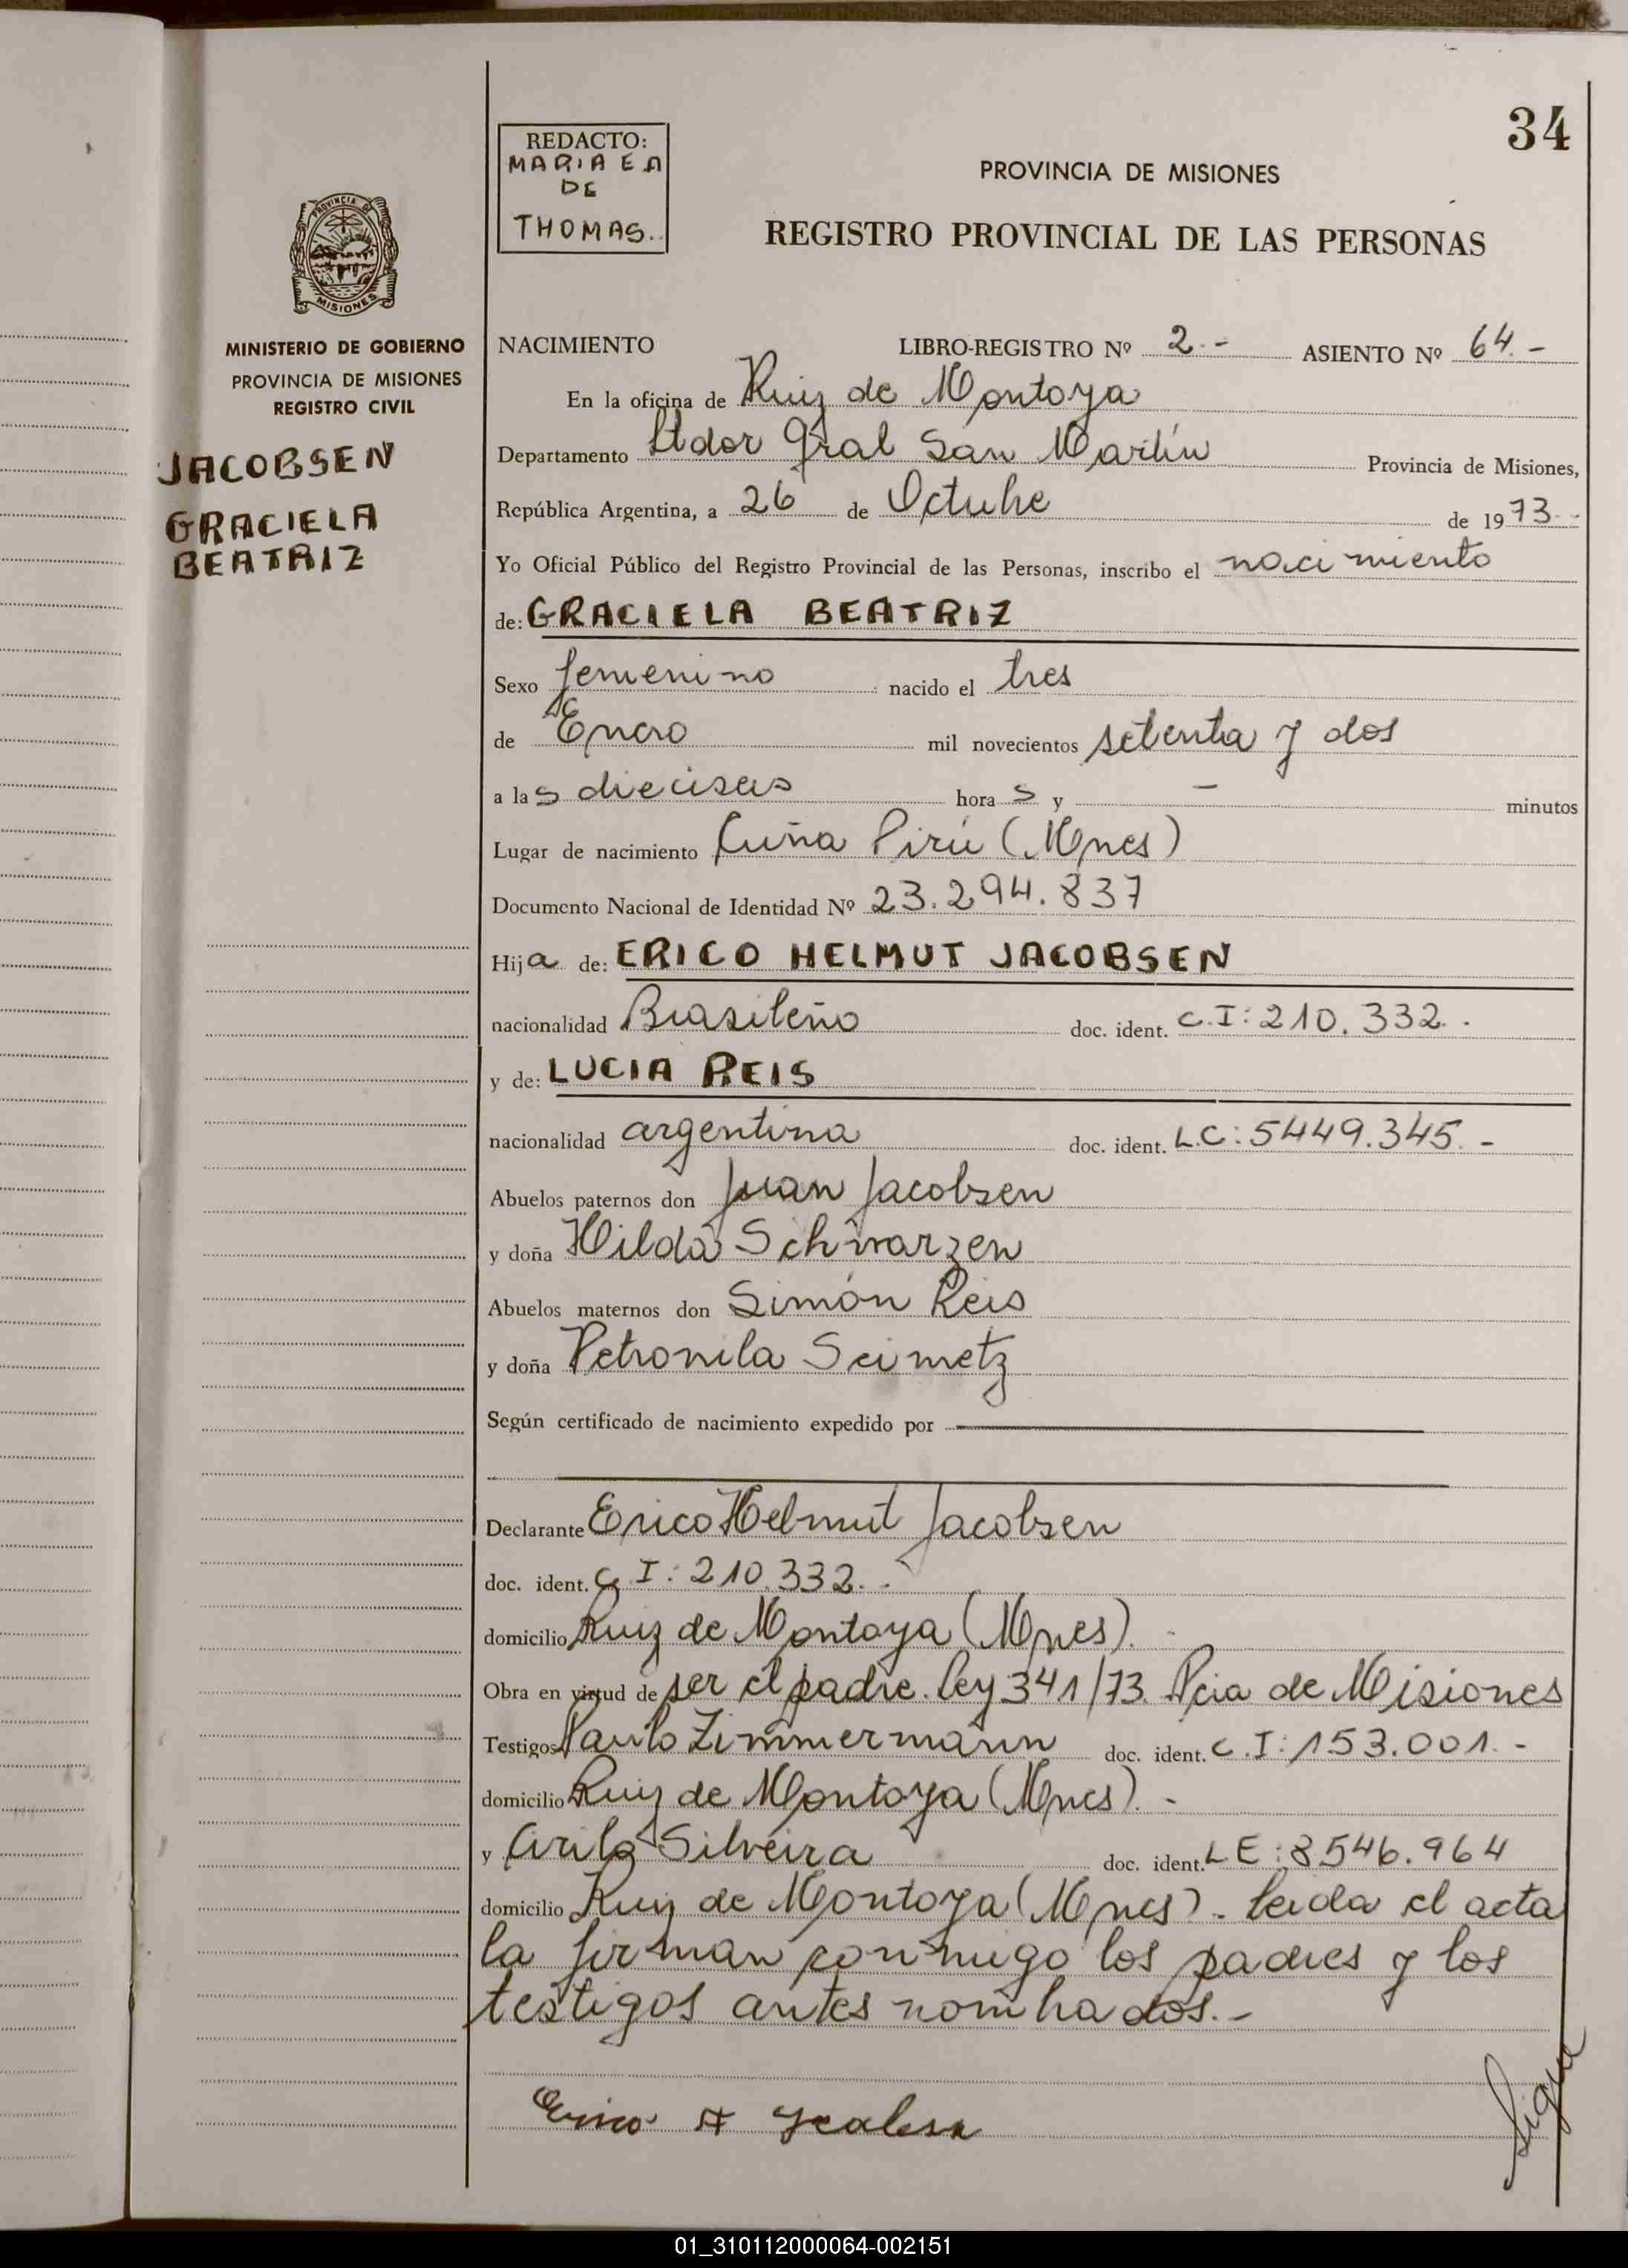 34
REDACTO:
MARIA E A
DE
THOMAS..
PROVINCIA DE MISIONES
REGISTRO PROVINCIAL DE LAS PERSONAS
PROVINCIA DE
MISIONES
MINISTERIO DE GOBIERNO
PROVINCIA DE MISIONES
REGISTRO CIVIL
JACOBSEN
GRACIELA
BEATRIZ
NACIMIENTO LIBRO-REGISTRO Nº 2.- ASIENTO Nº 64.-
En la oficina de Ruiz de Montoya
Departamento Ltdor Gral San Martín Provincia de Misiones,
República Argentina, a 26 de Octubre de 1973.-
Yo Oficial Público del Registro Provincial de las Personas, inscribo el nacimiento
de: GRACIELA BEATRIZ
Sexo femenino nacido el tres
de Enero mil novecientos setenta y dos
a las dieciseis horas y - minutos
Lugar de nacimiento Cuña Pirú (Mnes)
Documento Nacional de Identidad Nº 23.294.837
Hija de: ERICO HELMUT JACOBSEN
nacionalidad Brasileño doc. ident. C.I: 210.332.-
y de: LUCIA REIS
nacionalidad argentina doc. ident. L.C: 5449.345.-
Abuelos paternos don Juan Jacobsen
y doña Hilda Schwarzen
Abuelos maternos don Simón Reis
y doña Petronila Seimetz
Según certificado de nacimiento expedido por
Declarante Erico Helmut Jacobsen
doc. ident. C.I: 210.332.-
domicilio Ruiz de Montoya (Mnes).-
Obra en virtud de ser el padre. Ley 341/73 Pcia de Misiones
Testigos Paulo Zimmermann doc. ident. C.I: 153.001.-
domicilio Ruiz de Montoya (Mnes).-
y Arila Silveira doc. ident. LE: 8546.964
domicilio Ruiz de Montoya (Mnes). Leida el acta
la firman conmigo los padres y los
testigos antes nombrados.-
Erico H
Sigue
01_310112000064-002151